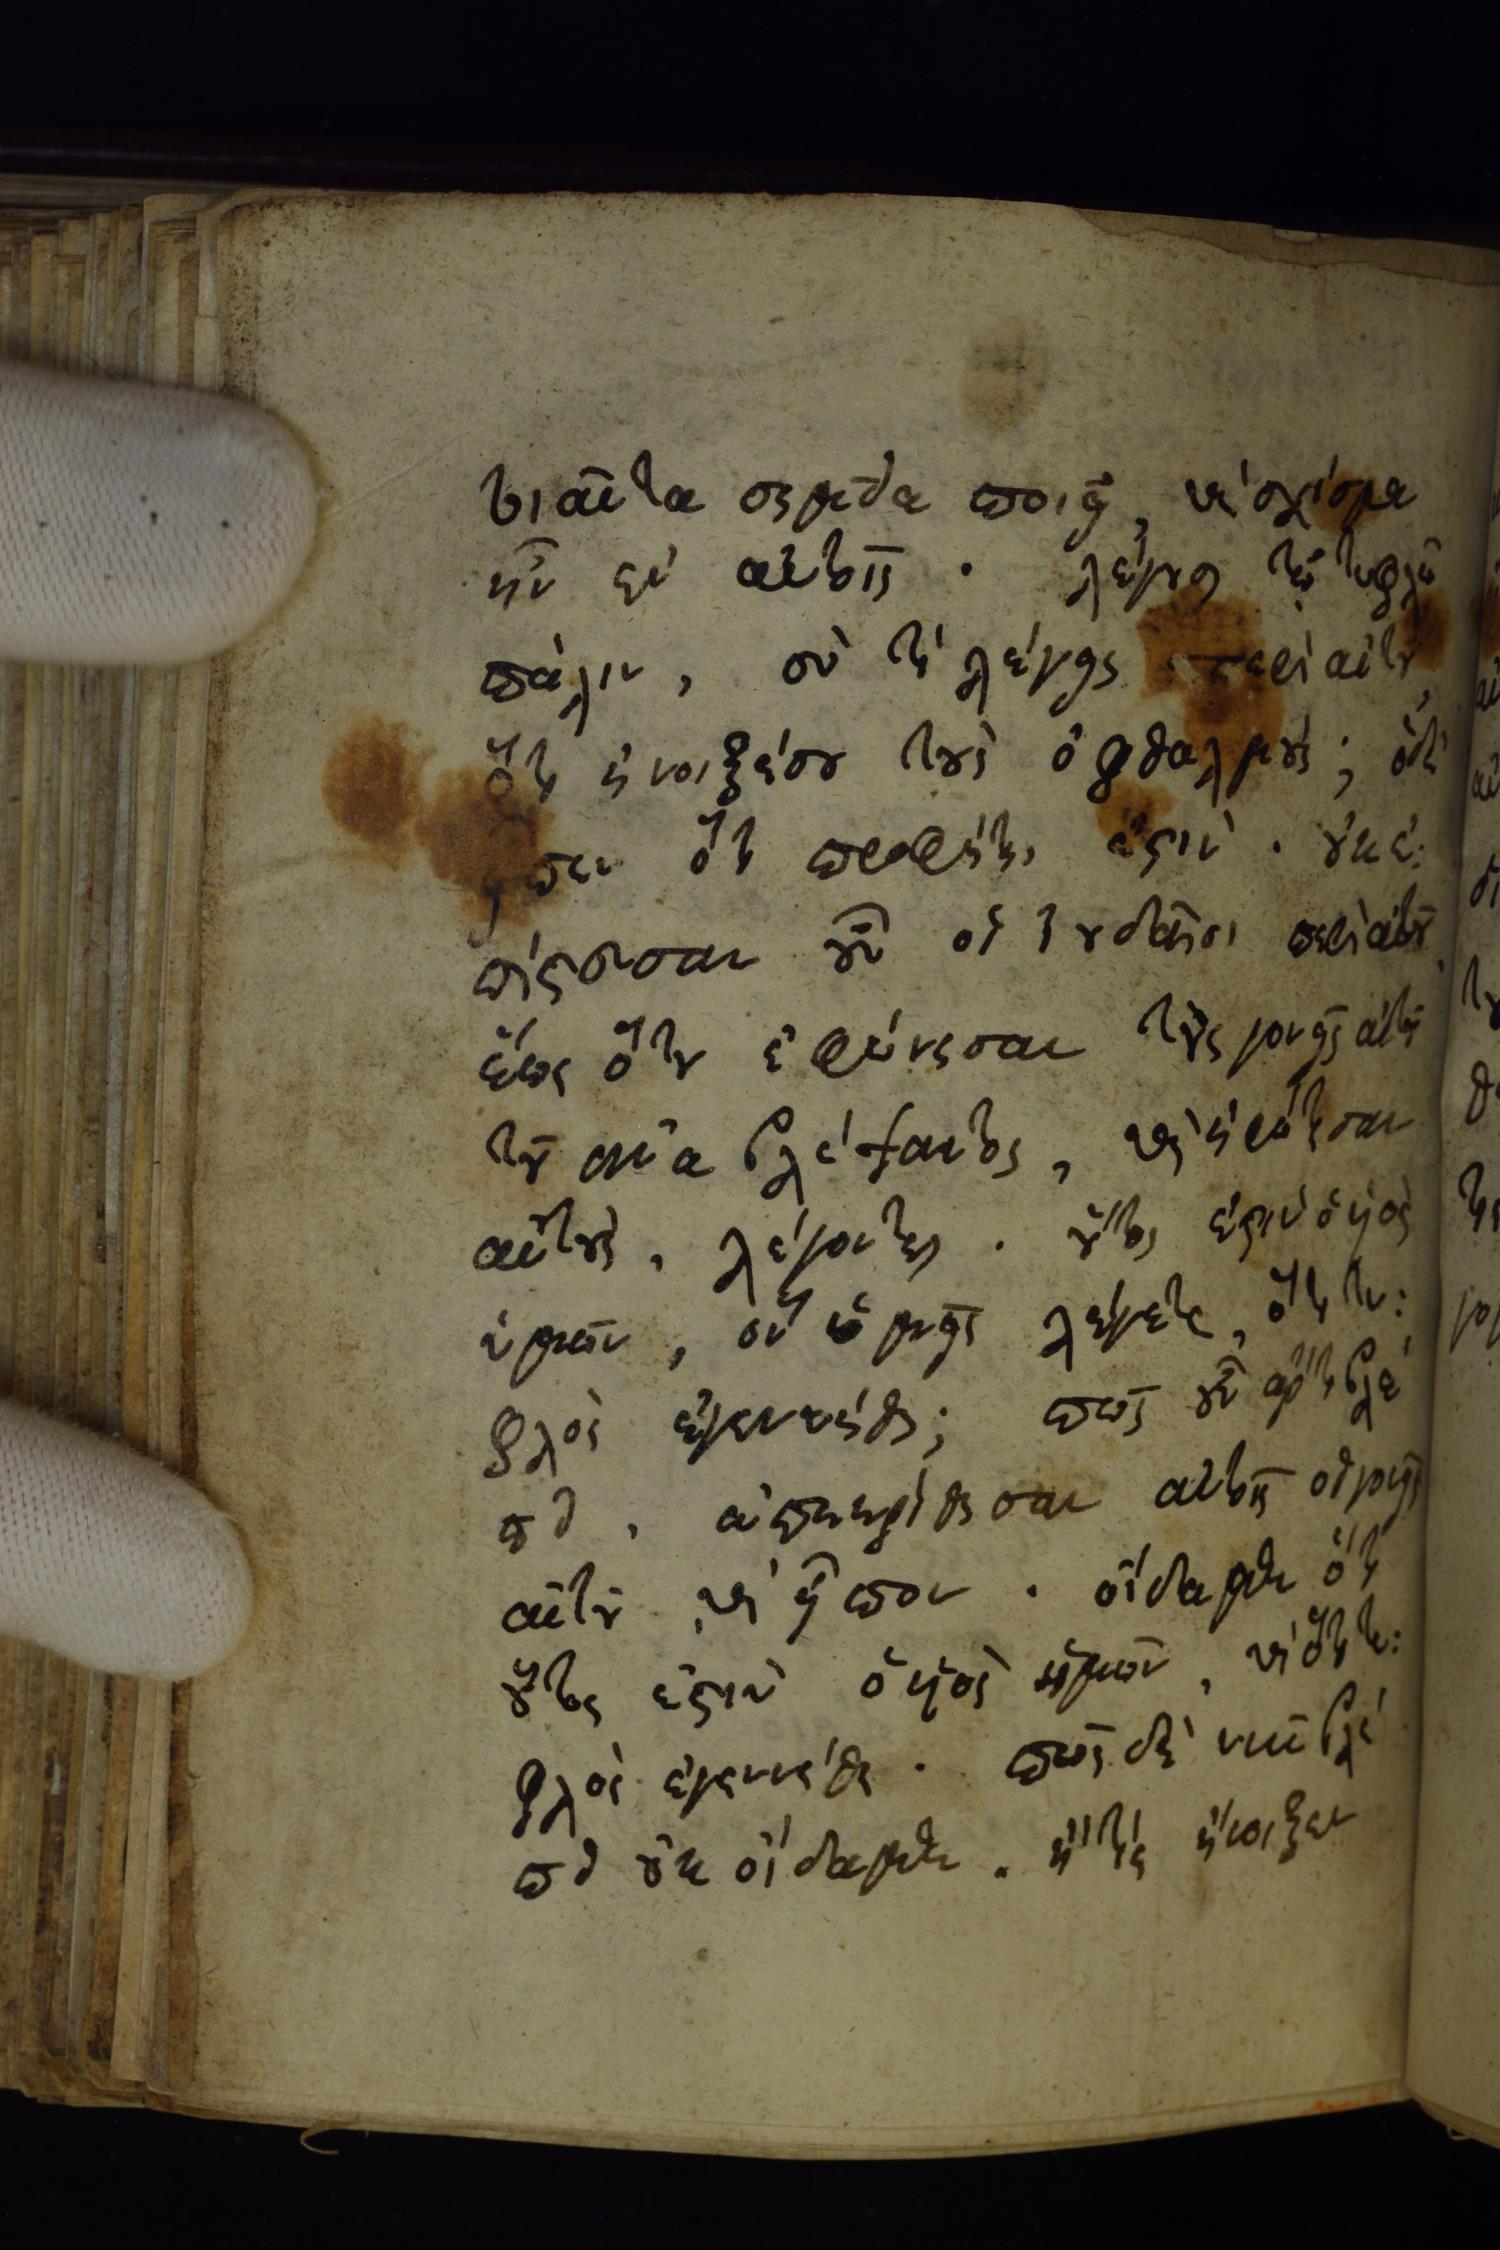 τοιαῦτα σημεῖα ποιῆν, καὶ σχίσμα
ἦν ἐν αὐτοῖς · λέγουσι τῶ τυφλῶ
πάλιν, σὺ τί λέγης περὶ αὐτοῦ,
ὅτι ἤνοιξέ σου τοὺς ὀφθαλμούς; ὁ δὲ
εἶπεν ὅτι προφήτης ἐστὶν · οὐκ ἐ:
πίστευσαν οὖν οἱ Ἰουδαῖοι περὶ αὐτοῦ
ἕως ὅτου ἐφώνησαν τοὺς γονεῖς αὐτοῦ
τοῦ ἀναβλέψαντος, καὶ ἠρώτησαν
αὐτοὺς, λέγοντες · οὗτος ἐστὶν ὁ υἱὸς
ὑμῶν, ὃν ὑμεῖς λέγετε, ὅτι τυ:
φλὸς ἐγεννήθη; πῶς οὖν ἄρτι βλέ
πει, ἀπεκρίθησαν αὐτοῖς οἱ γονεῖς
αὐτοῦ, καὶ εἶπον · οἴδαμεν ὅτι
οὗτος ἐστὶν ὁ υἱὸς ἡμῶν, καὶ ὅτι τυ:
φλὸς ἐγεννήθη · πῶς δὲ νῦν βλέ
πει οὐκ οἴδαμεν. ἢ τίς ἤνοιξεν